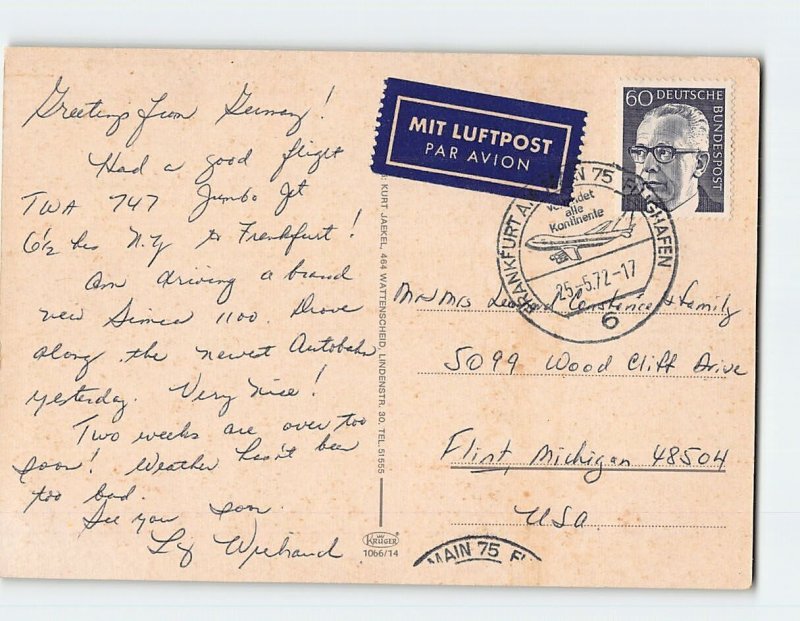 Greetings from Germany!
Had a good flight
TWA 747 Jumbo Jet
6½ hrs N.Y. to Frankfurt!
Am driving a brand
new Simca 1100. Drove
along the newest Autobahn
yesterday. Very nice!
Two weeks are over too
soon! Weather hasn't been
too bad.
See you soon.
Wiebrand
MIT LUFTPOST
PAR AVION
60 DEUTSCHE
BUNDESPOST
FRANKFURT A. MAIN 75 FLUGHAFEN
verbindet
alle
Kontinente
25.-5.72-17
6
Mr & Mrs & Family
5099 Wood Cliff Drive
Flint, Michigan 48504
USA
KURT JAEKEL, 464 WATTENSCHEID, LINDENSTR. 30, TEL. 51555
KRÜGER
1066/14
MAIN 75 FL